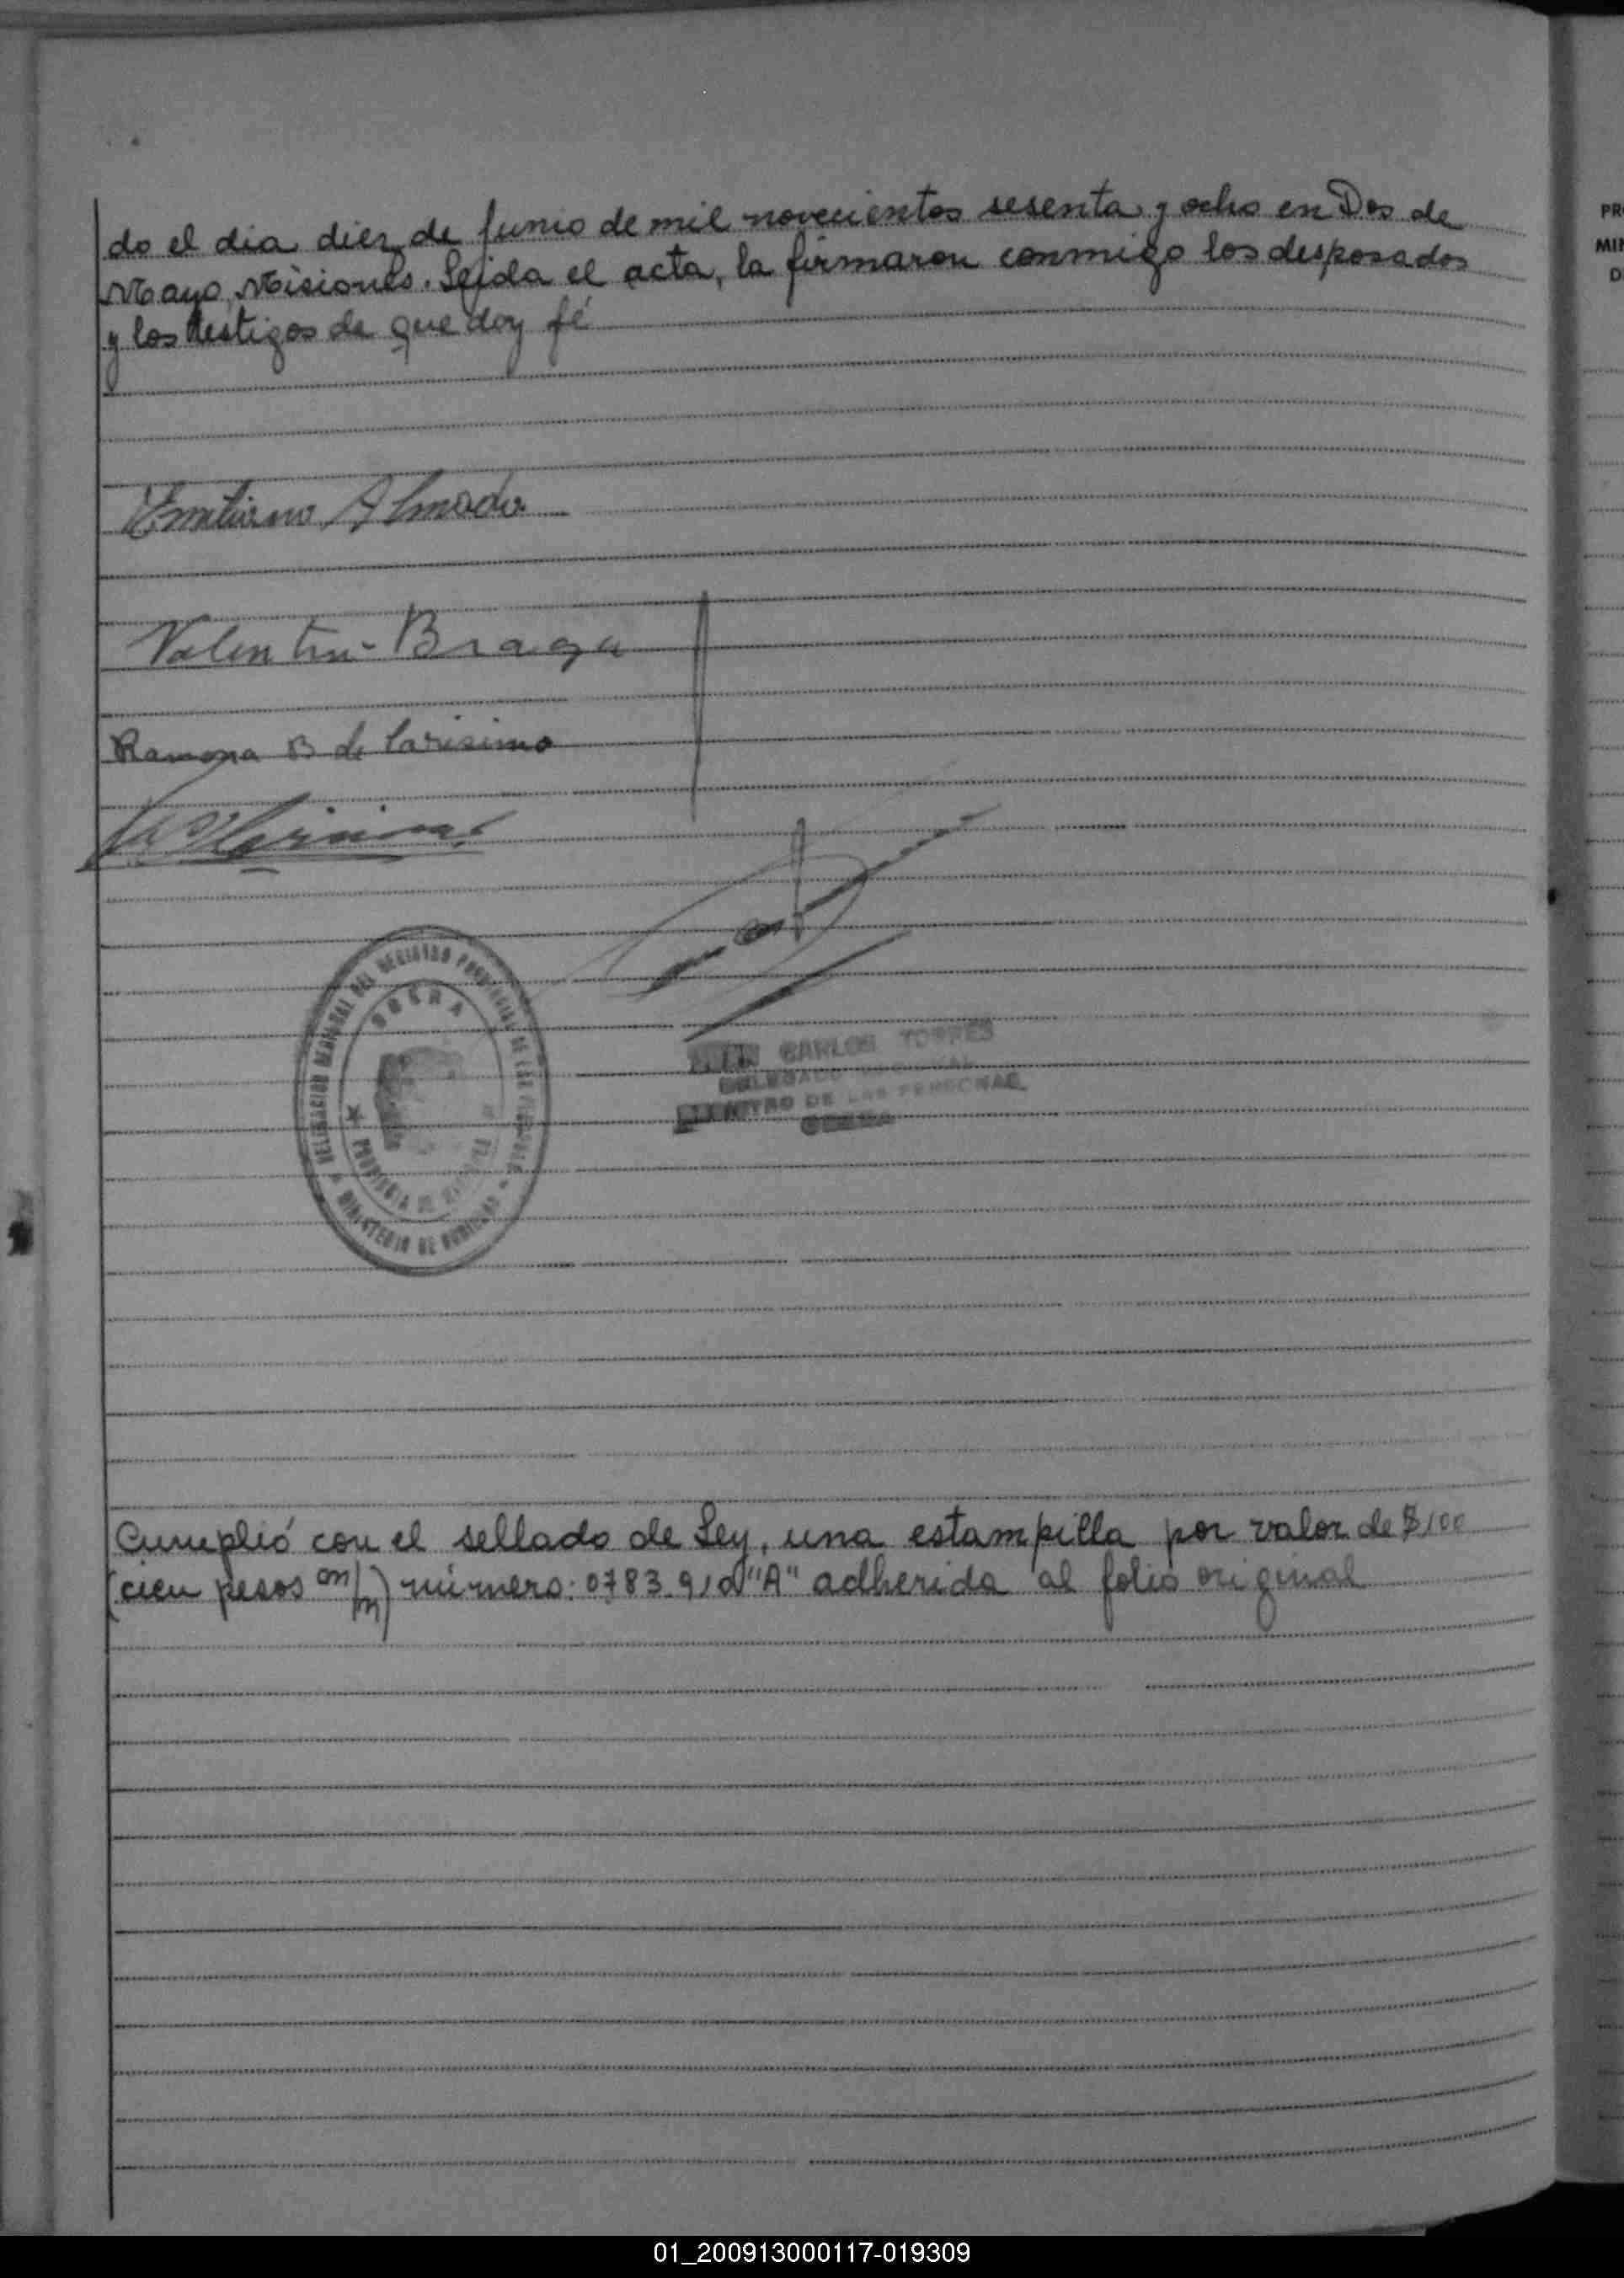 do el dia diez de Junio de mil novecientos sesenta y ocho en Dos de
Mayo, Misiones. Leida el acta, la firmaron conmigo los desposados
y los testigos de que doy fé
Emiliano Almada
Valentin Braga
Ramona B de
DELEGACION REGIONAL DEL REGISTRO PROVINCIAL DE LAS PERSONAS
OBERA
PROVINCIA DE MISIONES
MINISTERIO DE GOBIERNO
JUAN CARLOS TORRES
DELEGADO REGIONAL
REGISTRO DE LAS PERSONAS
OBERA
Cumplió con el sellado de Ley, una estampilla por valor de $100
(cien pesos m/n) número: 0783910 "A" adherida al folio original
PR
MIN
D
01_200913000117-019309